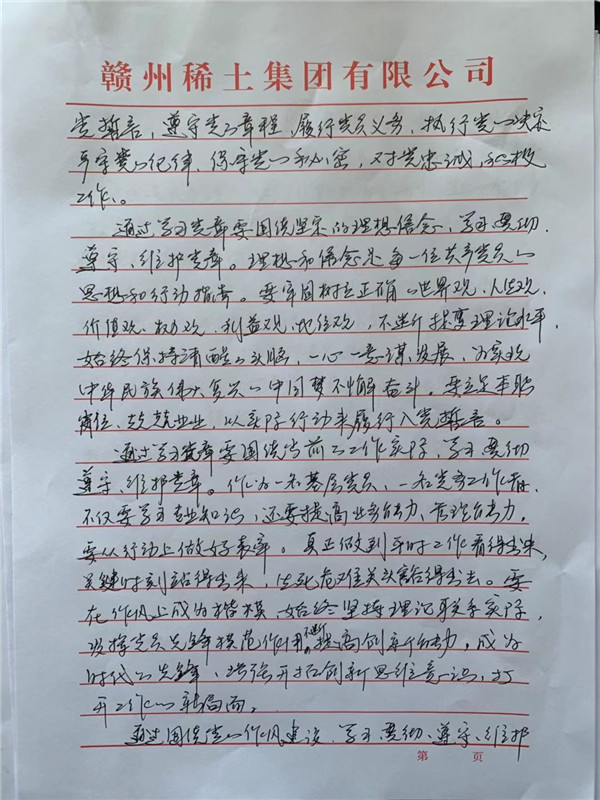 赣州稀土集团有限公司
党誓言，遵守党的章程，履行党员义务，执行党的决定
严守党的纪律，保守党的秘密，对党忠诚，积极
工作。
通过学习党章要围绕坚定的理想信念，学习、贯彻、
遵守、维护党章。理想和信念是每一位共产党员的
思想和行动指南。要牢固树立正确的世界观、人生观、
价值观、权力观、利益观、地位观，不断提高理论水平，
始终保持清醒的头脑，一心一意谋发展，为实现
中华民族伟大复兴的中国梦不懈奋斗。要立足本职
岗位、兢兢业业，以实际行动来履行入党誓言。
通过学习党章要围绕当前的工作实际，学习、贯彻
遵守、维护党章。作为一名基层党员，一名党务工作者，
不仅要学习专业知识，还要提高业务能力、管理能力，
要从行动上做好表率。真正做到平时工作看得出来，
关键时刻站得出来，生死危难关头豁得出去。要
在作风上成为楷模，始终坚持理论联系实际，
发挥党员先锋模范作用，不断提高创新能力，成为
时代的先锋，增强开拓创新思维意识，打
开工作的新局面。
通过围绕党的作风建设，学习、贯彻、遵守、维护
第 页